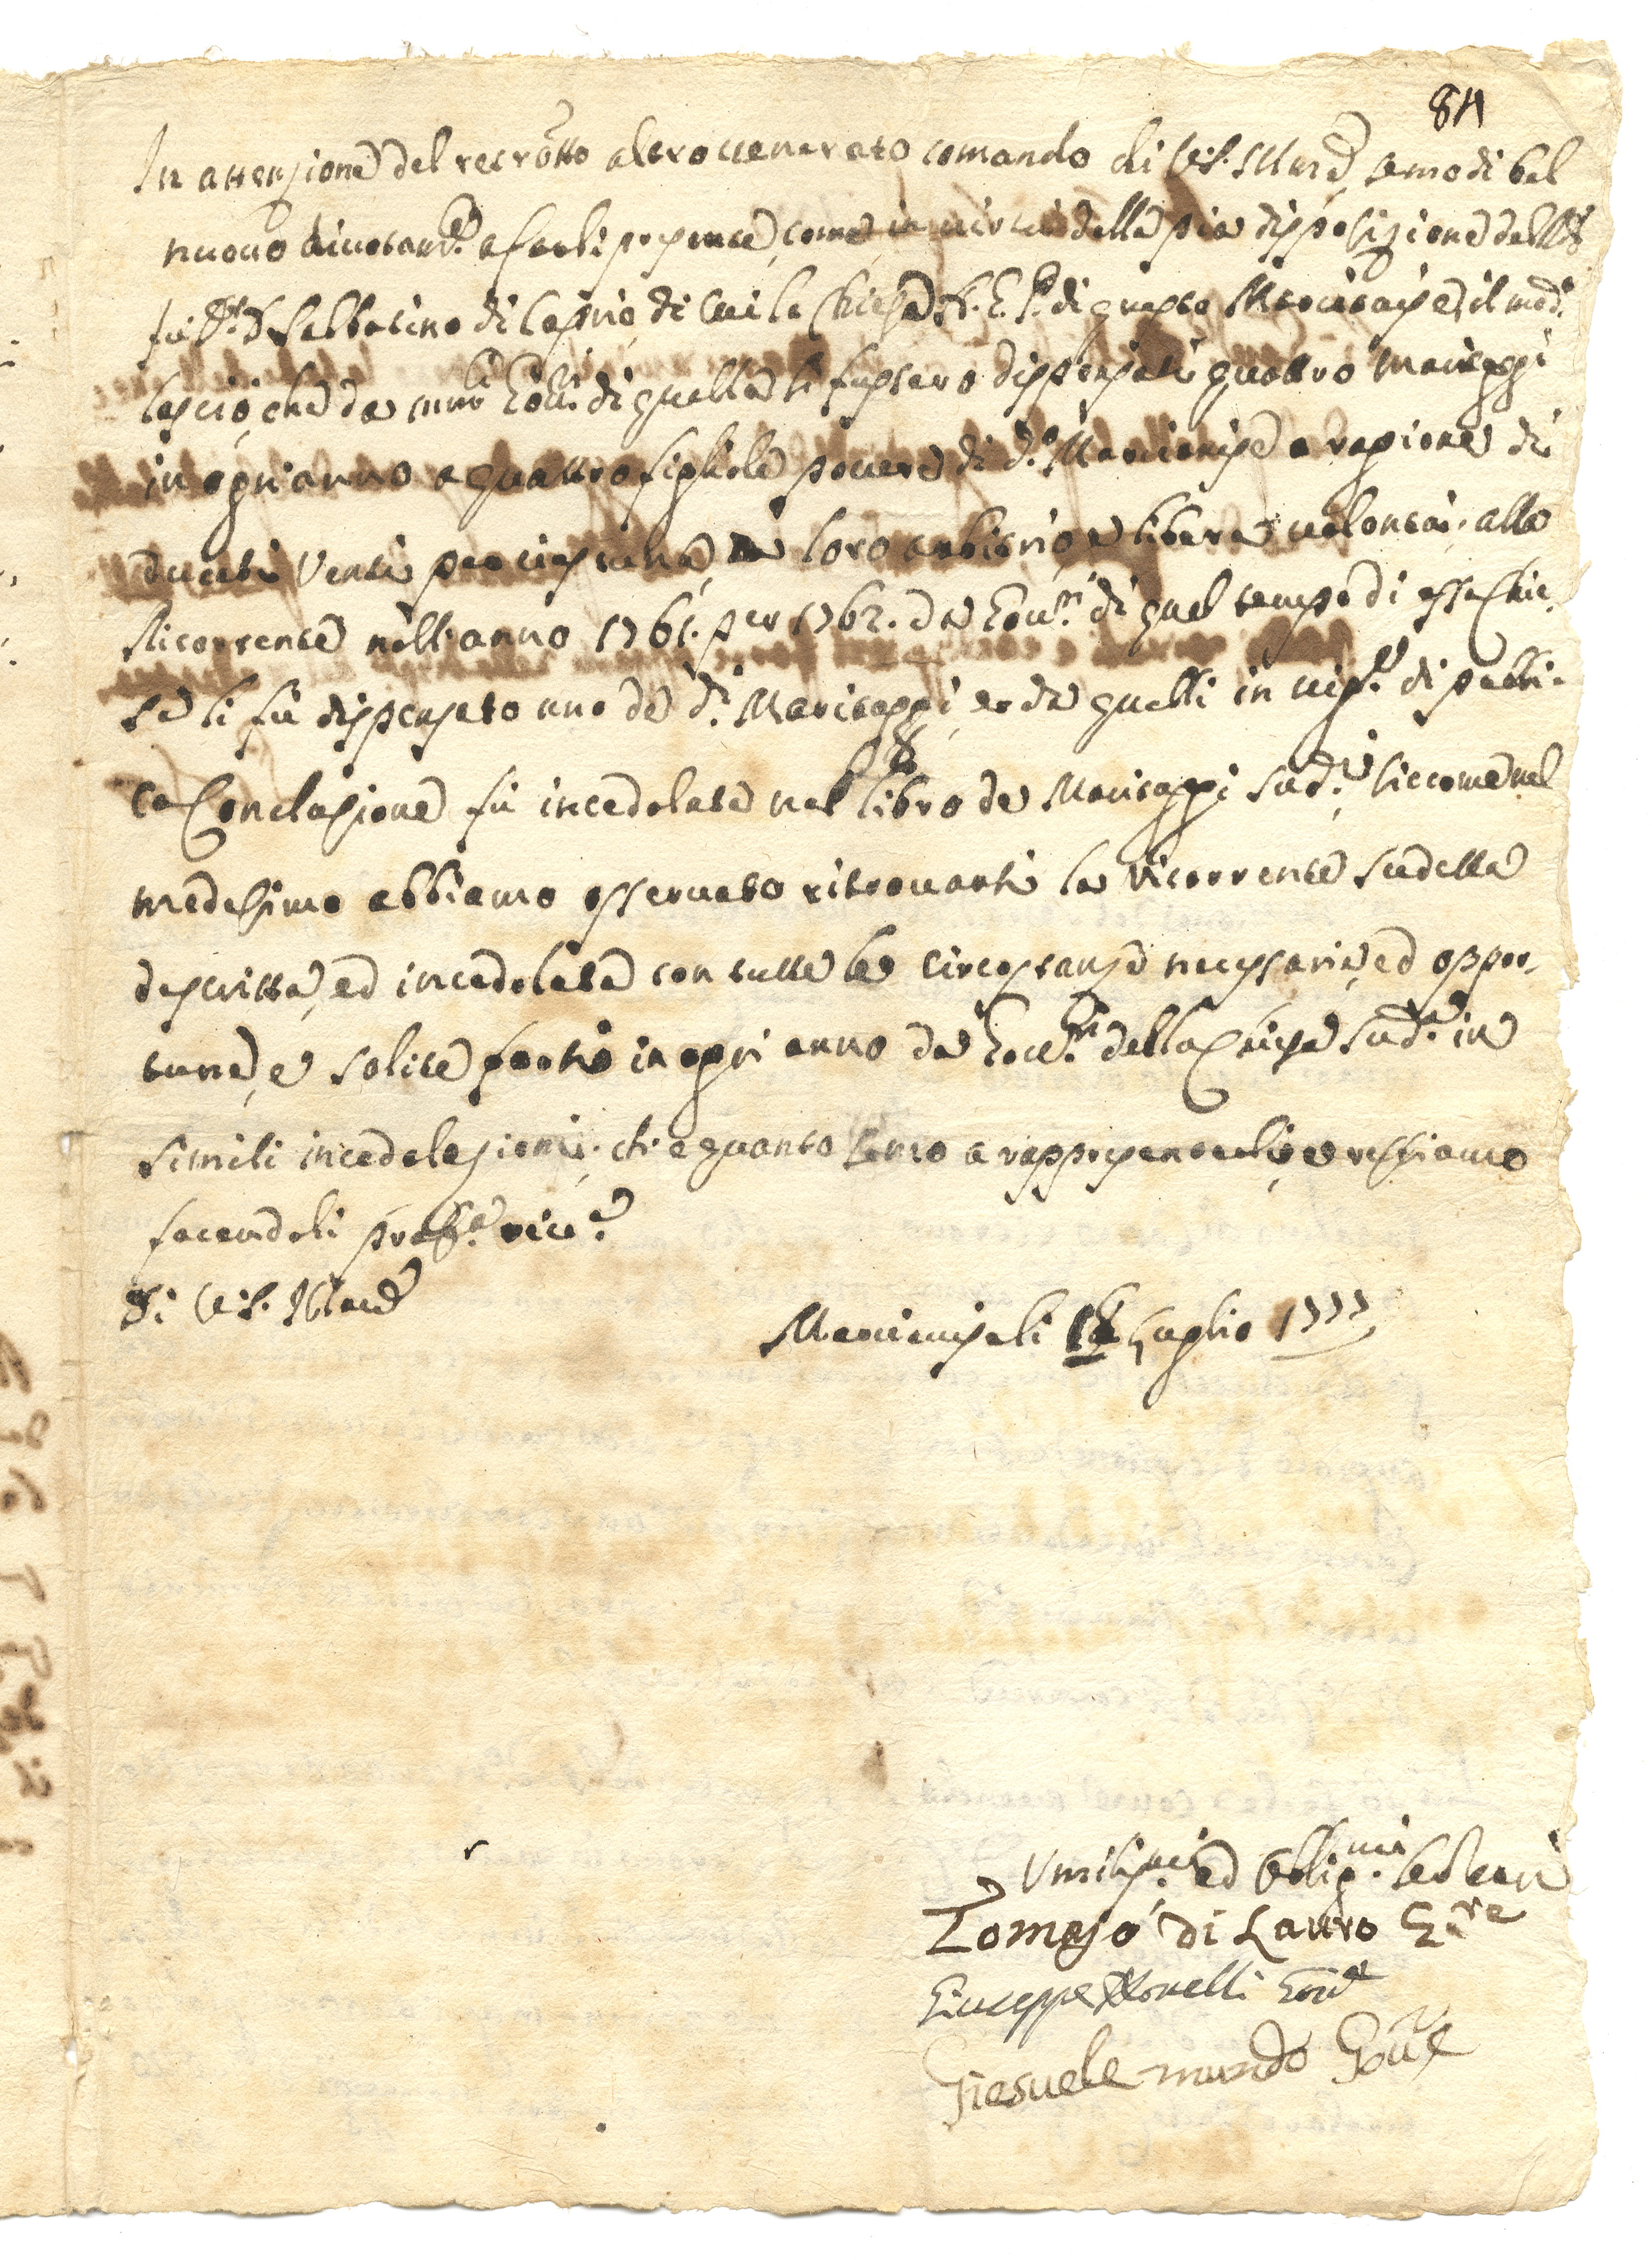 84
In attenzione del retrotto altro venerato comando di V.S. Ill.ma, semo di bel
nuovo a farli presente, come in virtù della pia disposizione dell
fù D.r D. Sabbatino di di Cui la Chiesa A.G.P. di questo Marcianise, il med.o
lasciò, che da Gov.ri di quella li fussero dispensati quattro Maritaggi
in ogni anno a quattro figliole povere di d.o Marcianise a ragione di
ducati Venti per ciascuna, loro arbitrio, e libera volontà; alla
Ricorrente nell'anno 1761. per 1762. da Gov.ri di quel tempo di essa Chie-
sa li fù dispensato uno de d.i Maritaggi, e da quelli in vig.e di publi-
ca Conclusione fù incedolata nel libro de Maritaggi sud.i, siccome nel
medesimo abbiamo osservato ritrovarsi la Ricorrente sudetta
descritta, ed incedolata con tutte le circostanze necessarie, ed oppor-
tune, e solite farsi in ogni anno da Gov.ri della Chiesa sud.a in
simili incedolazioni; ch'è quanto semo a rappresentarli, e restiamo
facendoli prof.a rive.a
Di V.S. Ill.ma
Marcianise li 18 Luglio 1777
Umiliss.mi ed Obblig.mi Ser.ri
Tomaso di Lauro G.re
Giuseppe Novelli Gov.e
Giesuele mundo Gov.e